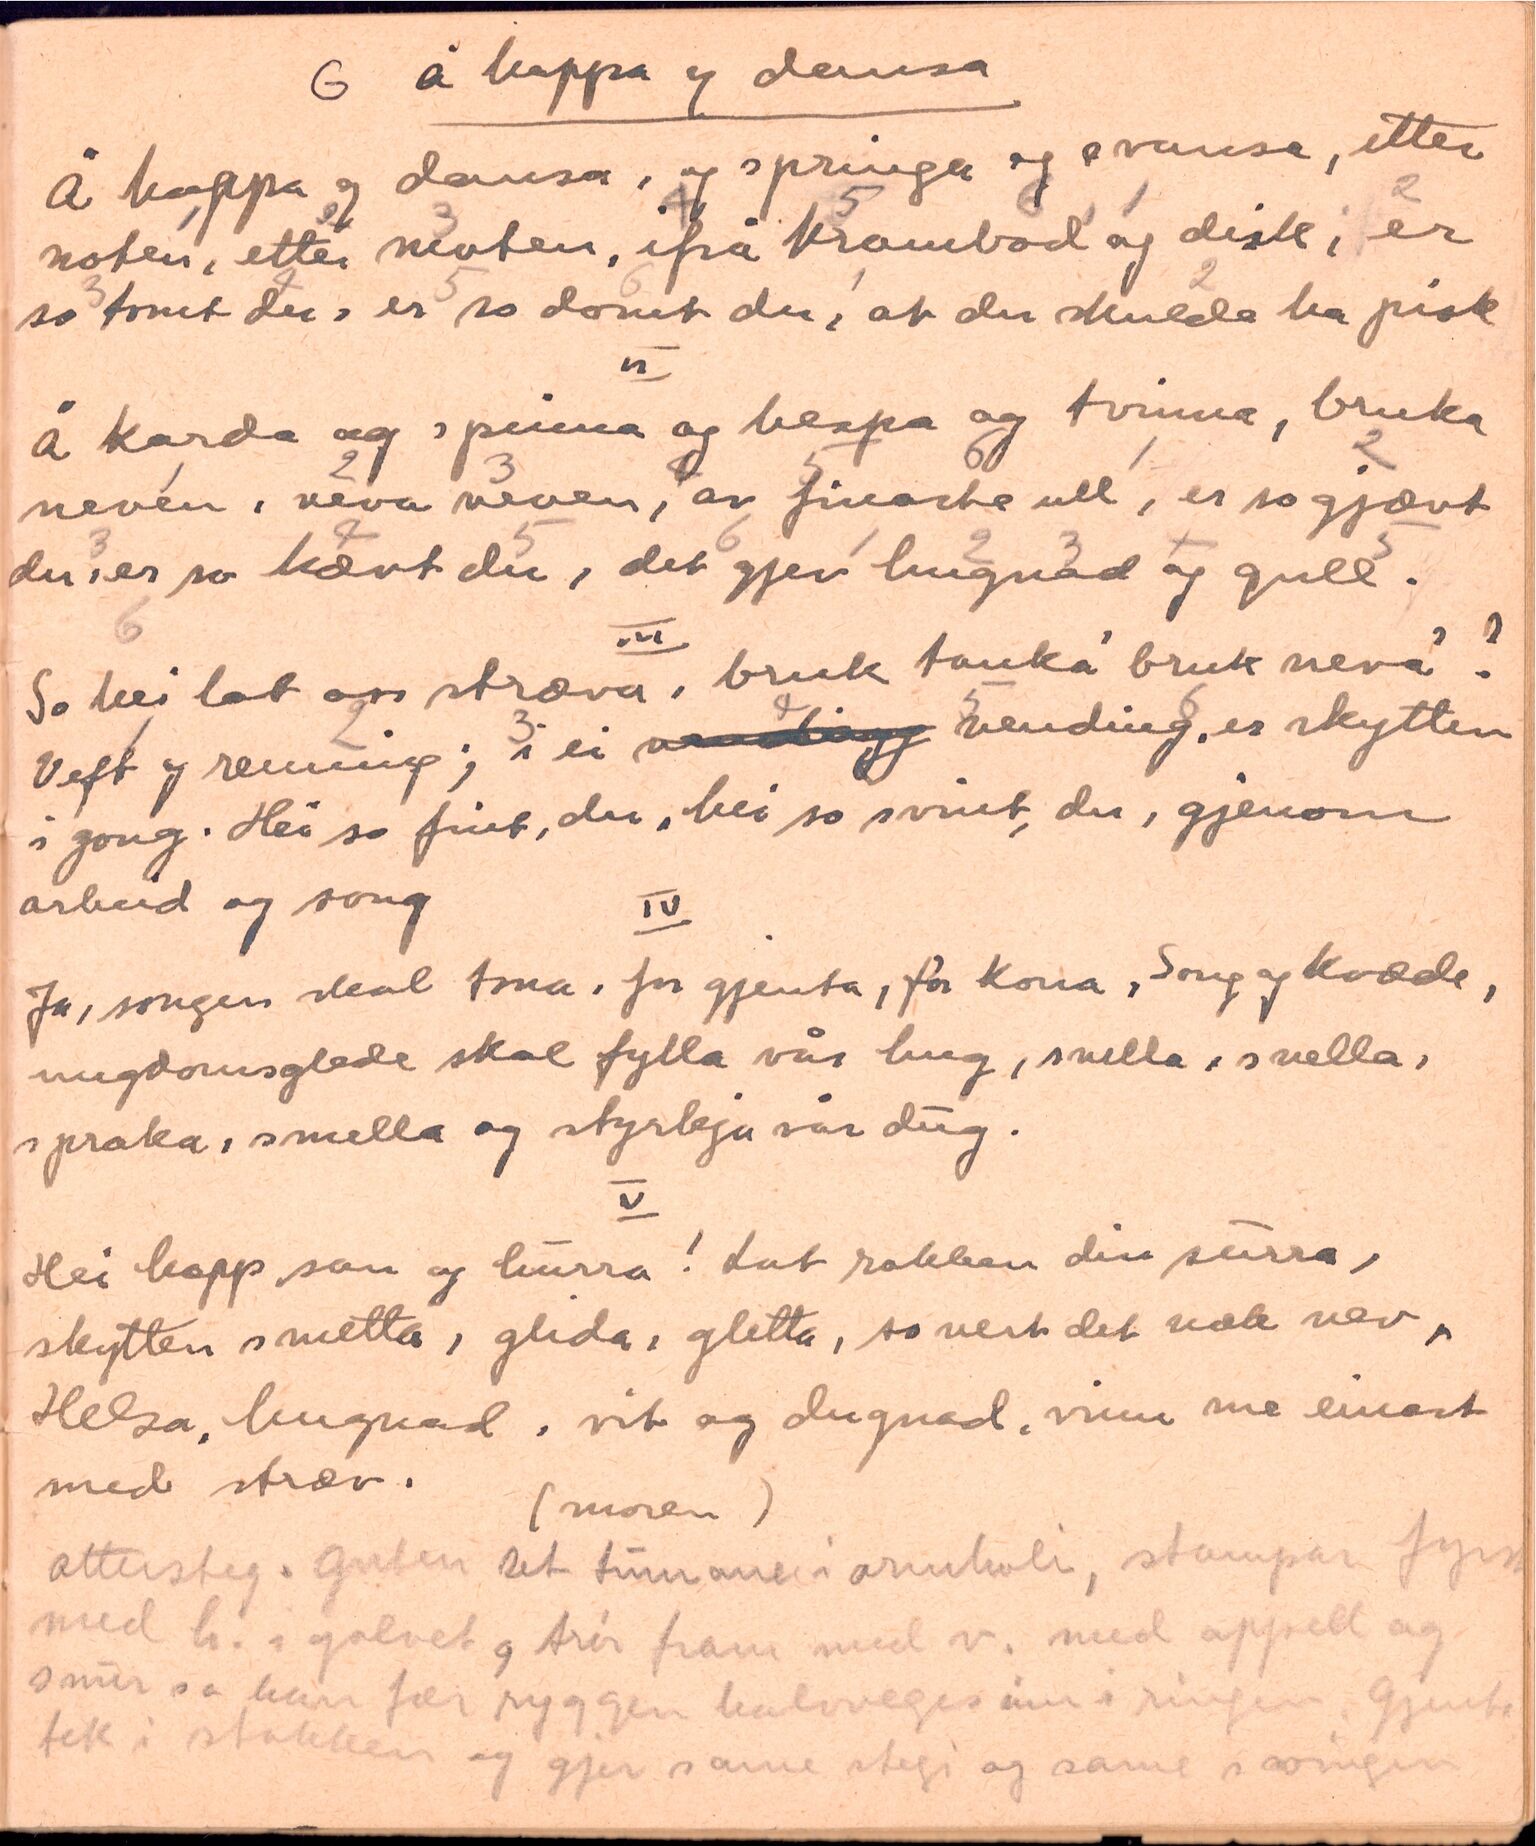 6 Å hoppa og dansa
Å hoppa og dansa, og springa og svansa, etter
noten, etter noten, ifrå krambod og disk, er
so tomt du, er so domt du, at du skulde ha pisk
II
Å karda og spinna og hespa og tvinna, bruka
neven, veva veven, av finaste ull, er so gjævt
du, er so kævt du, det gjev hugnad og gull.
III
So hei lat oss stræva, bruk tanka' bruk neva'!
Veft og renning, i ei vending, er skytten
i gong. Hei so fint, du, hei so svint, du, gjenom
arbeid og song
IV
Ja, songen skal tona, for gjenta, for kona, Song og kvæde,
ungdomsglede skal fylla vår hug, snella, snella,
spraka, smella og styrkja vår dug.
V
Hei hopp san og hurra! Lat rokken din surra,
skytten smetta, glida, gletta, so vert det nok vev,
Helsa, hugnad, vit og dugnad, vinn me einast
med stræv.
(moren)
attersteg. Guten set tumane i armholi, stampar fyrst
med h. i golvet og trør fram med v. med appell og
snur so han fær ryggen halvveges inn i ringen. Gjenta
tek i stakken og gjer same stegi og same svingen